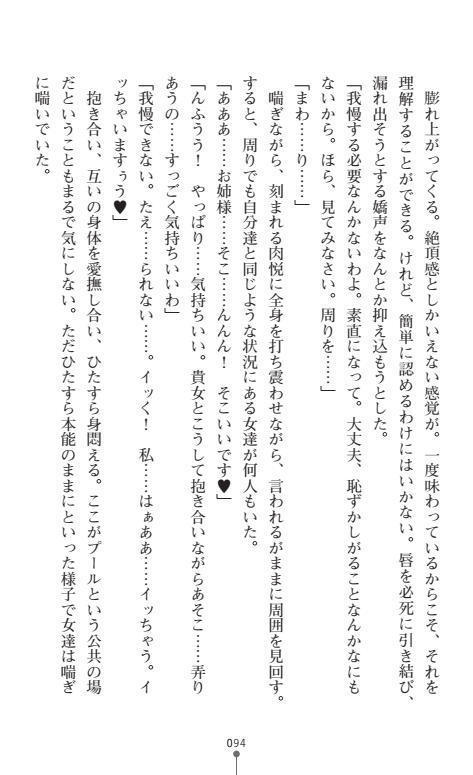 膨れ上がってくる。絶頂感としかいえない感覚が。一度味わっているからこそ、それを
理解することができる。けれど、簡単に認めるわけにはいかない。唇を必死に引き結び、
漏れ出そうとする嬌声をなんとか抑え込もうとした。
「我慢する必要なんかないわよ。素直になって。大丈夫、恥ずかしがることなんかなにも
ないから。ほら、見てみなさい。周りを……」
「まわ……り……」
喘ぎながら、刻まれる肉悦に全身を打ち震わせながら、言われるがままに周囲を見回す。
すると、周りでも自分達と同じような状況にある女達が何人もいた。
「あああ……お姉様……そこ……んんん！　そこいいです♥」
「んふうう！　やっぱり……気持ちいい。貴女とこうして抱き合いながらあそこ……弄り
あうの……すっごく気持ちいいわ」
「我慢できない。たえ……られない……。イッく！　私……はぁああ……イッちゃう。イ
ッちゃいますぅう♥」
抱き合い、互いの身体を愛撫し合い、ひたすら身悶える。ここがプールという公共の場
だということもまるで気にしない。ただひたすら本能のままにといった様子で女達は喘ぎ
に喘いでいた。
094